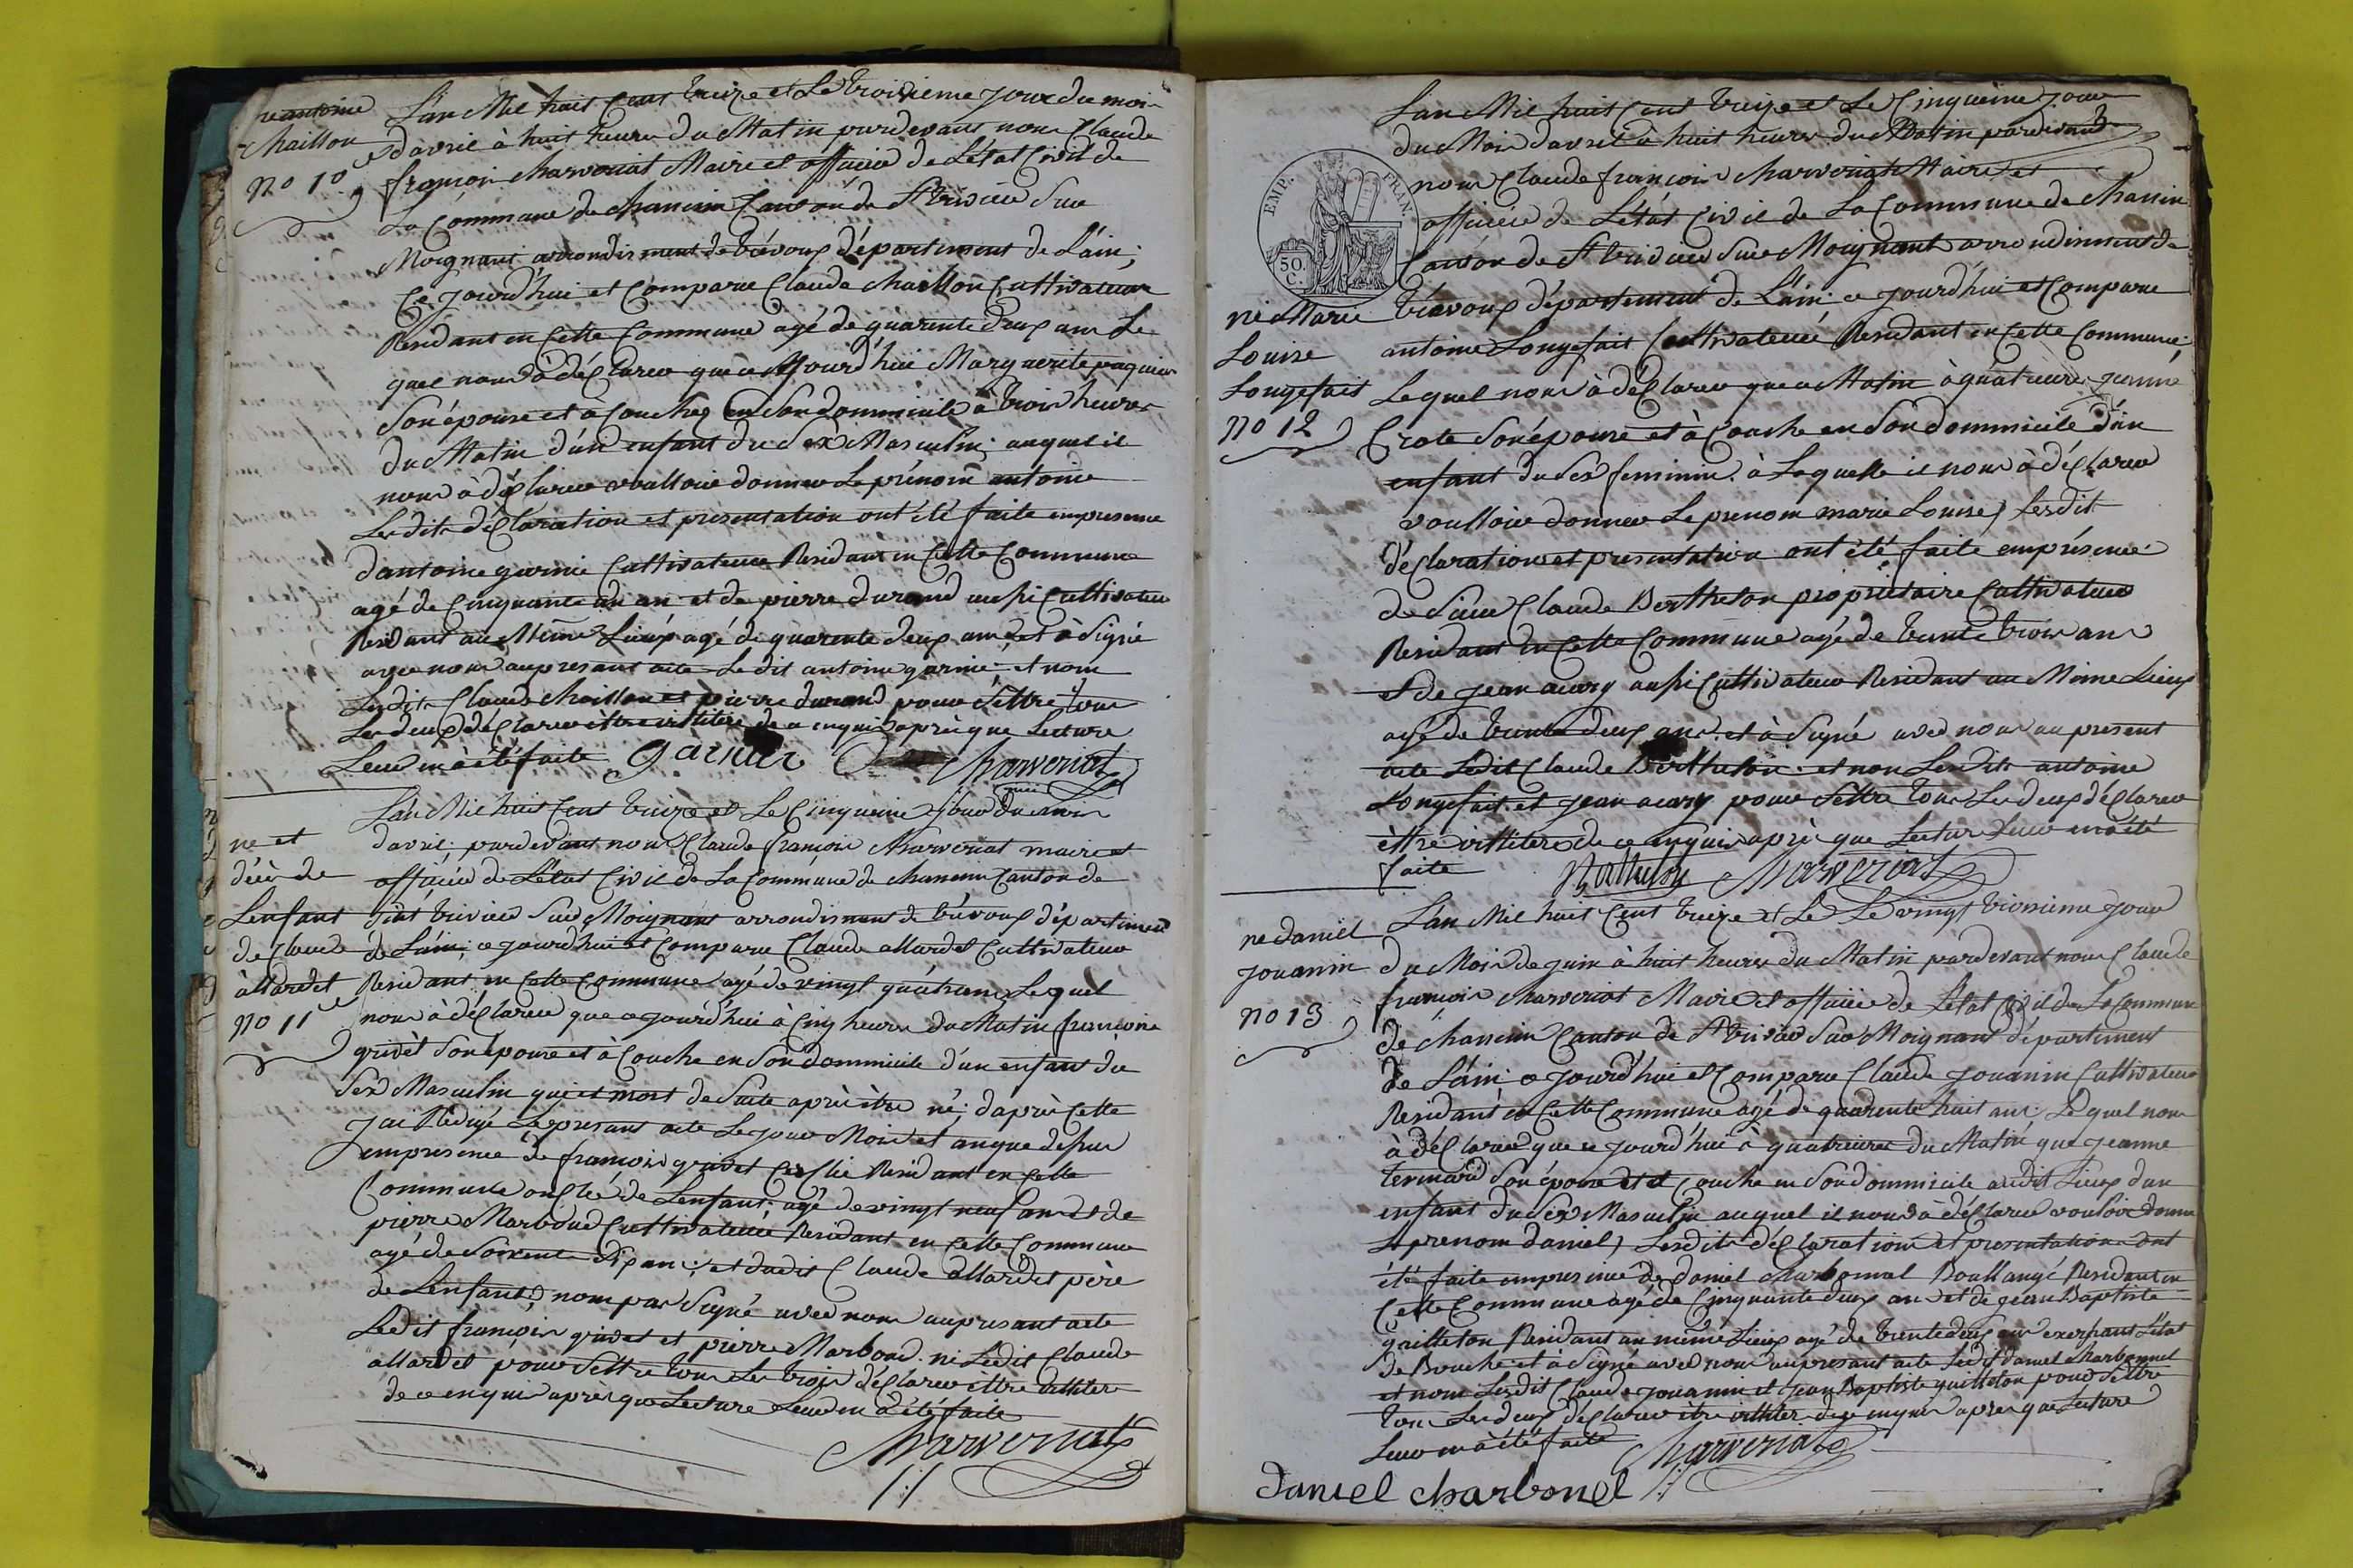 né antoine
chaillon
no 10
L'an Mil huit Cent treize et Le troisieme jour du moi
davril à huit heure du Matin pardevant nous Claude
françoi charvériat Maire et officié de L'état Civil de
La Commune de chanein Canton de St trivier Sur
Moignant arrondisment de trévoux département de L'ain;
Ce jourd'hui et Comparu Claude chaillon Cultivateur
Résidant en Cette Commune agé de quarente deux ans Le
quel nous à déClarer que ce jourd'hui Marguerite paquier
Son épouse et à Couchez en Son dommicile à trois heures
du Matin d'un enfant du Sex Masculin; auquel il
nous à déClarer voulloir donner Le prénom antoine
Lesdits déClaration et presentation ont été faite en presence
dantoine garnié Cultivateur Residant en Cette Commune
agé de Cinquante un an et de pierre durand aussi Cultivateur
Residant au Même Lieux agé de quarente deux ans, et à Signé
avec nous au presant acte Le dit antoine garnié et nom
Lesdits Claude chaillon et pierre durand pour Settre tous
Les deux déClarer être ittitère de ce enquis après que Lecture
Leur en à été faite garnier Charveriat
né et
décè de
L'enfant
de Claude
allardet
no 11
L'an Mil huit Cent treize et Le Cinquieme Jour du mois
davril pardevant nous Claude françoi Charveriat maire et
officié de L'état Civil de La Commune de chaneins Canton de
Saint trivier Sur Moignant arrondisment de trévoux département
de L'ain; ce jourd'hui et Comparu Claude allardet Cultivateur
Residant en Cette Commune agé de vingt quatre ans Lequel
nous à déClarer que ce jourd'hui à Cinq heures du Matin françoise
grivèt Son épouse et à Couche en Son dommicile d'un enfant du
Sex Masculin qui et mort de Suite aprè être né; daprè Cette
J'ai Rédigé Le presant acte Le jour Mois et an que dessus
en presence de françois grivet Resident en Cette
Commune oncle de L'enfant; agé de vingt neuf ans et de
pierre Marboud Cultivateur Residant en Cette Commune
agé de Soixente Dix ans; et dudit Claude allardet père
de L'enfant; nom pas Signé avec nous au presant acte
Ledit françois grivet et pierre Marboud. ni Ledit Claude
allardet pour Settre tous Les trois déClarer être ittiter
de ce enquis apres que Lecture Leur en à été faite
Charveriat
EMP. FRAN.
50.
C.
né Marie
Louise
Longefait
no 12
L'an Mil huit Cent treize et Le Cinquième jour
du Mois davril à huit heures du Matin pardevand
nous Claude françois charveriat Maire et
officié de L'état Civil de La Commune de chanin
Canton de St trivier Sur Moignant arrondisment de
trévoux département de L'ain; ce jourd'hui et Comparu
antoine Longefait Cultivateur Residant en Cette Commune;
Lequel nous à déClarer que ce Matin à quatreure Jeanne
Crote Son épouse et à Couche en Son dommicile d'un
enfant du Sex feminin. à Laquelle il nous à déClarer
voulloir donner Le prenom marie Louise, Lesdit
déClaration et presentation ont été faite en présence
de Sieur Claude Berthelon propriétaire Cultivateur
Residant en Cette Commune agé de trente trois ans
et de Jean aucry aussi Cultivateur Residant au Même Lieux
agé de trente deux ans. et à Signé avec nous au present
acte Ledit Claude Berthelon et non Lesdits antoine
Longefait et Jean aucry pour Settre tous Les deux déClarer
être ittitère de ce enquis après que Lecture Leur en à été
faite Bathelon Charveriat
né daniel
jouanin
no 13
L'an Mil huit Cent treize et Le Le vingt troisieme jour
du Mois de Juin à huit heures du Matin pardevant nous Claude
françois charveriat Maire et officié de L'état Civil de La Commune
de chaneins Canton de St trivier Sur Moignant département
de L'ain; ce jourd'hui et Comparu Claude Jouanin Cultivateur
Residant en Cette Commune agé de quarente huit ans; Le quel nous
à déClarer que ce jourd'hui à quatreures du Matin, que Jeanne
termard Son épouse et à Couche en Son dommicile audit Lieux d'un
enfant du Sex Masculin auquel il nous à déClarer voulloir donner
Le prenom daniel, Lesdits déClaration et presentation ont
été faite en presence de daniel charbonnel Boullangé Residant en
Cette Commune agé de Cinquante deux ans et de Jean Baptiste
guilleton Residant au même Lieux agé de trentedeux ans exerssant L'état
de Bouché et à Signé avec nous au presant acte Ledit daniel charbonnel
et nom Lesdit Claude Jouanin et Jean Baptiste guilleton pour Settre
tous Les deux déClarer être ittiter de ce enquis apres que Lecture
Leur en à été faite Charveriat
daniel charbonel